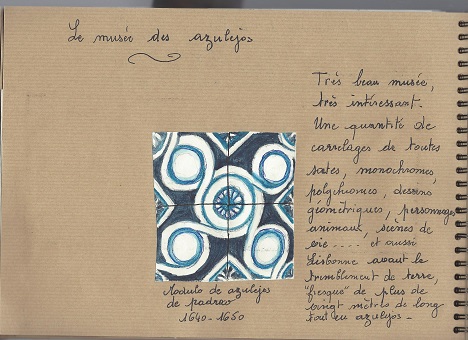 Le musée des azulejos
Très beau musée,
très intéressant.
Une quantité de
carrelages de toutes
sortes, monochromes,
polychromes, dessins
géométriques, personnages
animaux, scènes de
vie .... et aussi
Lisbonne avant le
tremblement de terre,
"fresque" de plus de
vingt mètres de long
tout en azulejos -
Modulo de azulejos
de padrao
1640-1650